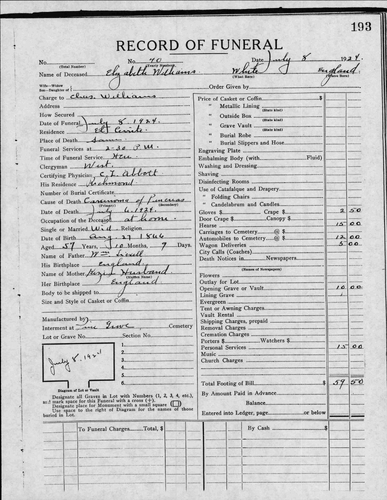 193
RECORD OF FUNERAL
No. No. 70 Date July 8 1924.
(Total Number) (Yearly Number)
Name of Deceased Elizabeth Williams White England
(What Race) (Where Born)
Wife—Widow
Son—Daughter of Order Given by
Charge to Chas. Williams Price of Casket or Coffin
Address " Metallic Lining
(State kind)
How Secured " Outside Box
(State kind)
Date of Funeral July 8, 1924. " Grave Vault
(State kind)
Residence El Cerrito " Burial Robe
(State kind)
Place of Death same " Burial Slippers and Hose
Funeral Services at 2:30 P.M. Engraving Plate
Time of Funeral Service Embalming Body (with Fluid)
Clergyman West. Washing and Dressing
Certifying Physician C. L. Abbott Shaving
His Residence Richmond Disinfecting Rooms
Number of Burial Certificate Use of Catafalque and Drapery
Cause of Death Carcinoma of " Folding Chairs
Date of Death July 6, 1924. " Candelabrum and Candles
Occupation of the Deceased at home. Gloves $ Crape $ 2 50
Single or Married Wid. Religion Door Crape $ Canopy $
Date of Birth Aug 27 1866 Hearse 15 00
Aged 57 Years, 10 Months, 9 Days Carriages to Cemetery @ $
Name of Father Wm Automobiles to Cemetery @ $ 12 00
His Birthplace England Wagon Deliveries 5 00
Name of Mother Husband City Calls (Coaches) @ $
Her Birthplace England Death Notices in Newspapers
(Names of Newspapers)
Body to be shipped to Flowers
Size and Style of Casket or Coffin Outlay for Lot
Opening Grave or Vault 10 00
Lining Grave
Manufactured by Evergreens
Interment at Cemetery Tent or Awning Charges
Lot or Grave No. Section No. Vault Rental
July 8, 1924 Shipping Charges, prepaid
1. Removal Charges
2. Cremation Charges
3. Porters $ Watchers $
4. Personal Services 15 00
5. Music
6. Church Charges
Diagram of Lot or Vault
Total Footing of Bill $ 59 50
Designate all Graves in Lot with Numbers (1, 2, 3, 4, etc.,
or) mark space for this Funeral with a cross (+). By Amount Paid in Advance
Designate place for Monument with a small square
Use space to the right of Diagram for the names of those Balance
buried in Lot. Entered into Ledger, page or below
To Funeral Charges Total $ By Cash $